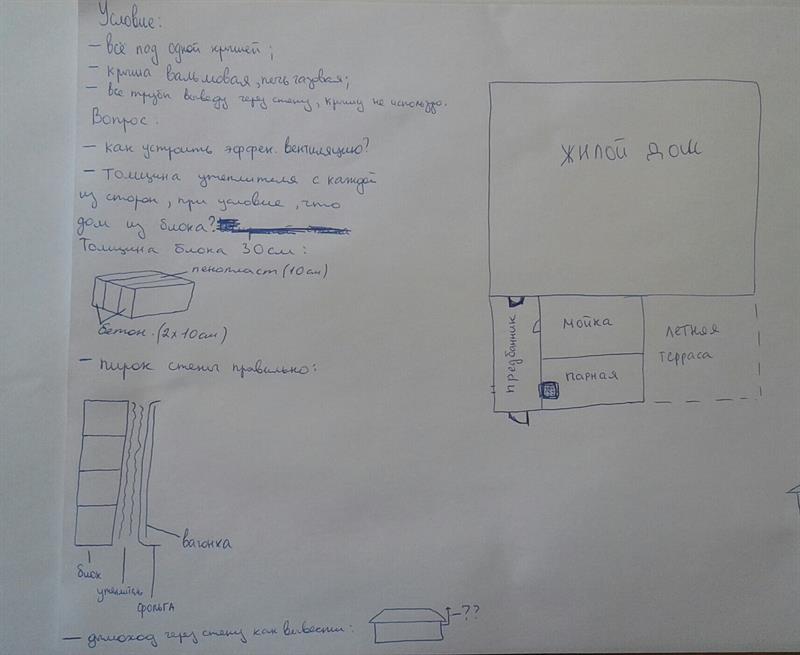 Условие:
- всё под одной крышей;
- крыша вальмовая, печь газовая;
- все трубы выведу через стену, крышу не использую.
Вопрос:
- как устроить эффен. вентиляцию?
- Толщина утеплителя с каждой
из сторон, при условие, что
дом из блока?
Толщина блока 30см:
пенопласт (10см)
бетон. (2х10см)
- пирок стены правильно:
вагонка
блок
утеплитель
фольга
- дымоход через стену как вывести:
-??
ЖИЛОЙ ДОМ
предбанник
мойка
парная
летняя
терраса